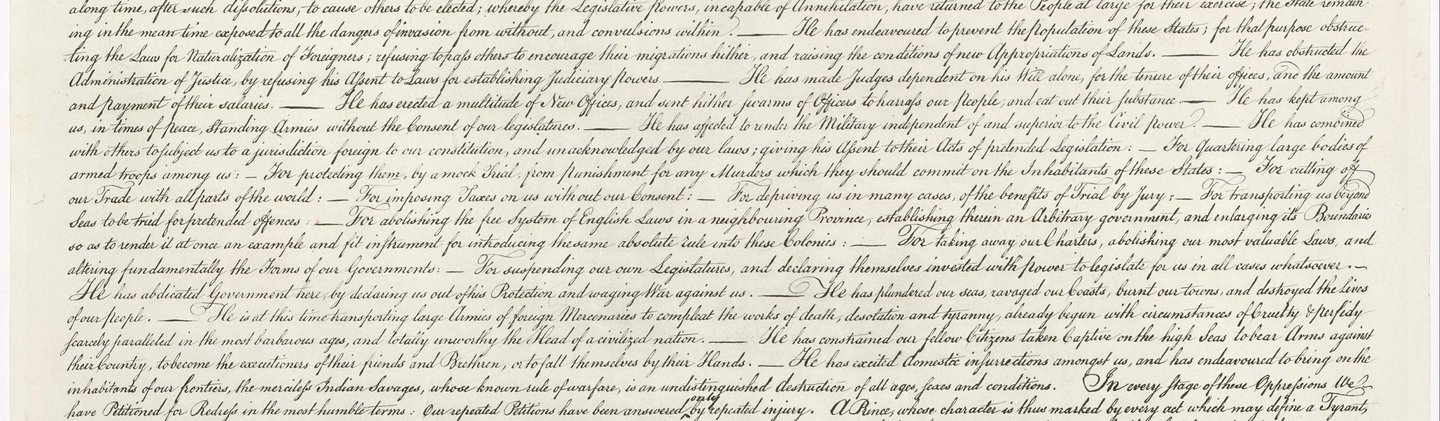 along time, after such dissolutions, to cause others to be elected; whereby the Legislative powers, incapable of Annihilation, have returned to the People at large for their exercise; the State remain
ing in the mean time exposed to all the dangers of invasion from without, and convulsions within. — He has endeavoured to prevent the population of these States; for that purpose obstruc-
ting the Laws for Naturalization of Foreigners; refusing to pass others to encourage their migrations hither, and raising the conditions of new Appropriations of Lands. — He has obstructed the
Administration of Justice, by refusing his Assent to Laws for establishing Judiciary powers — He has made Judges dependent on his Will alone, for the tenure of their offices, and the amount
and payment of their salaries. — He has erected a multitude of New Offices, and sent hither swarms of Officers to harrass our People, and eat out their substance. — He has kept among
us, in times of peace, Standing Armies without the Consent of our legislatures. — He has affected to render the Military independent of and superior to the Civil power. — He has combined
with others to subject us to a jurisdiction foreign to our constitution, and unacknowledged by our laws; giving his Assent to their Acts of pretended Legislation: — For Quartering large bodies of
armed troops among us: — For protecting them, by a mock Trial, from punishment for any Murders which they should commit on the Inhabitants of these States: — For cutting off
our Trade with all parts of the world: — For imposing Taxes on us without our Consent: — For depriving us in many cases, of the benefits of Trial by Jury: — For transporting us beyond
Seas to be tried for pretended offences: — For abolishing the free System of English Laws in a neighbouring Province, establishing therein an Arbitrary government, and enlarging its Boundaries
so as to render it at once an example and fit instrument for introducing the same absolute rule into these Colonies: — For taking away our Charters, abolishing our most valuable Laws, and
altering fundamentally the Forms of our Governments: — For suspending our own Legislatures, and declaring themselves invested with power to legislate for us in all cases whatsoever. —
He has abdicated Government here, by declaring us out of his Protection and waging War against us. — He has plundered our seas, ravaged our Coasts, burnt our towns, and destroyed the Lives
of our people. — He is at this time transporting large Armies of foreign Mercenaries to compleat the works of death, desolation and tyranny, already begun with circumstances of Cruelty & perfidy
scarcely paralleled in the most barbarous ages, and totally unworthy the Head of a civilized nation. — He has constrained our fellow Citizens taken Captive on the high Seas to bear Arms against
their Country, to become the executioners of their friends and Brethren, or to fall themselves by their Hands. — He has excited domestic insurrections amongst us, and has endeavoured to bring on the
inhabitants of our frontiers, the merciless Indian Savages, whose known rule of warfare, is an undistinguished destruction of all ages, sexes and conditions. In every stage of these Oppressions We
have Petitioned for Redress in the most humble terms: Our repeated Petitions have been answered only by repeated injury. A Prince, whose character is thus marked by every act which may define a Tyrant,